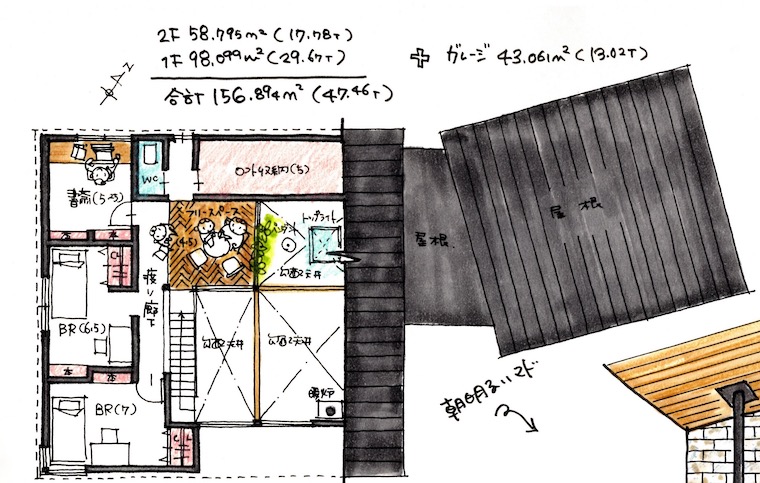 2F 58.795m²(17.78T)
1F 98.099m²(29.67T)
合計 156.894m²(47.46T)
+ ガレージ 43.061m²(13.02T)
WC
ロフト収納(5)
書斎(5.25)
フリースペース
(4.5)
トップライト
勾配天井
本
本
CL
渡り廊下
BR(6.5)
勾配天井
勾配天井
本
本
暖炉
BR(7)
CL
屋根
屋根
朝明るいマド